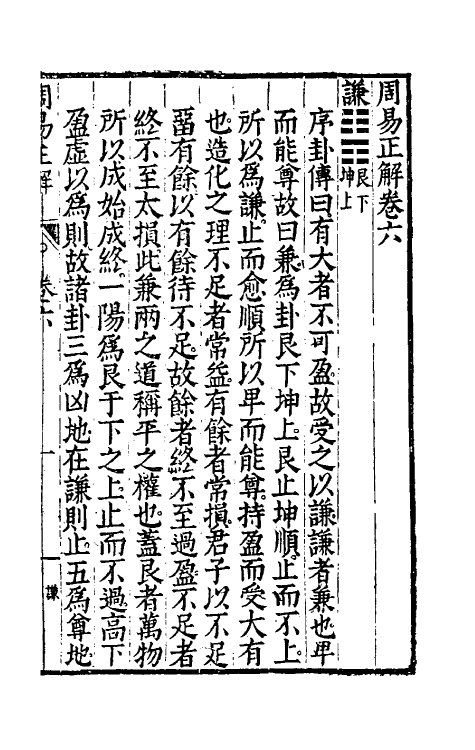 周易正解卷六
謙䷎艮下坤上
序卦傳曰有大者不可盈故受之以謙謙者兼也卑
而能尊故曰兼爲卦艮下坤上艮止坤順止而不上
所以爲謙止而愈順所以卑而能尊持盈而受大有
也造化之理不足者常益有餘者常損君子以不足
畱有餘以有餘待不足故餘者終不至過盈不足者
終不至太損此兼兩之道稱平之權也蓋艮者萬物
所以成始成終一陽爲艮于下之上止而不過高下
盈虛以爲則故諸卦三爲凶地在謙則止五爲尊地
周易正解 卷六 一 謙